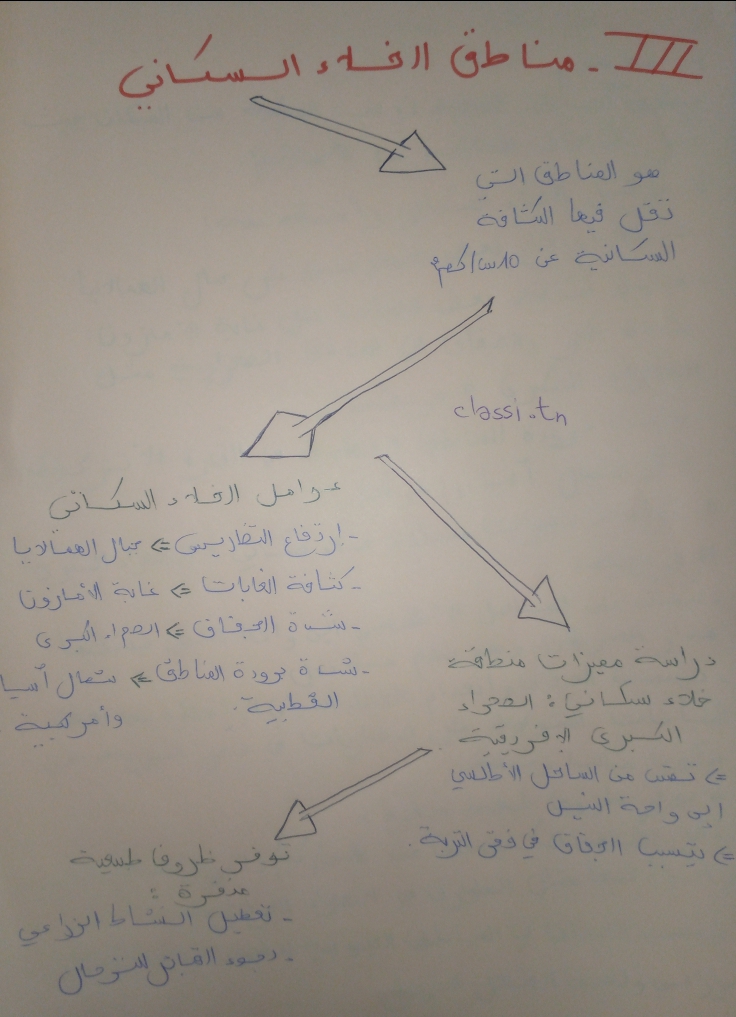 III - مناطق الخلاء السكاني
هو المناطق التي
تقل فيها الكثافة
السكانية عن 10س/كم²
classi.tn
عوامل الخلاء السكاني
- إرتفاع التضاريس => جبال الهمالايا
- كثافة الغابات => غابة الأمازون
- شدة الجفاف => الصحراء الكبرى
- شدة برودة المناطق القطبية => شمال آسيا وأمريكية
دراسة مميزات منطقة
خلاء سكاني: الصحراء
الكبرى الإفريقية
=> تمتد من الساحل الأطلسي
إلى واحة النيل
=> يتسبب الجفاف في فقر التربة.
توفر ظروف طبيعية
منفرة:
- تعطيل النشاط الزراعي
- وجود القبائل الترحال